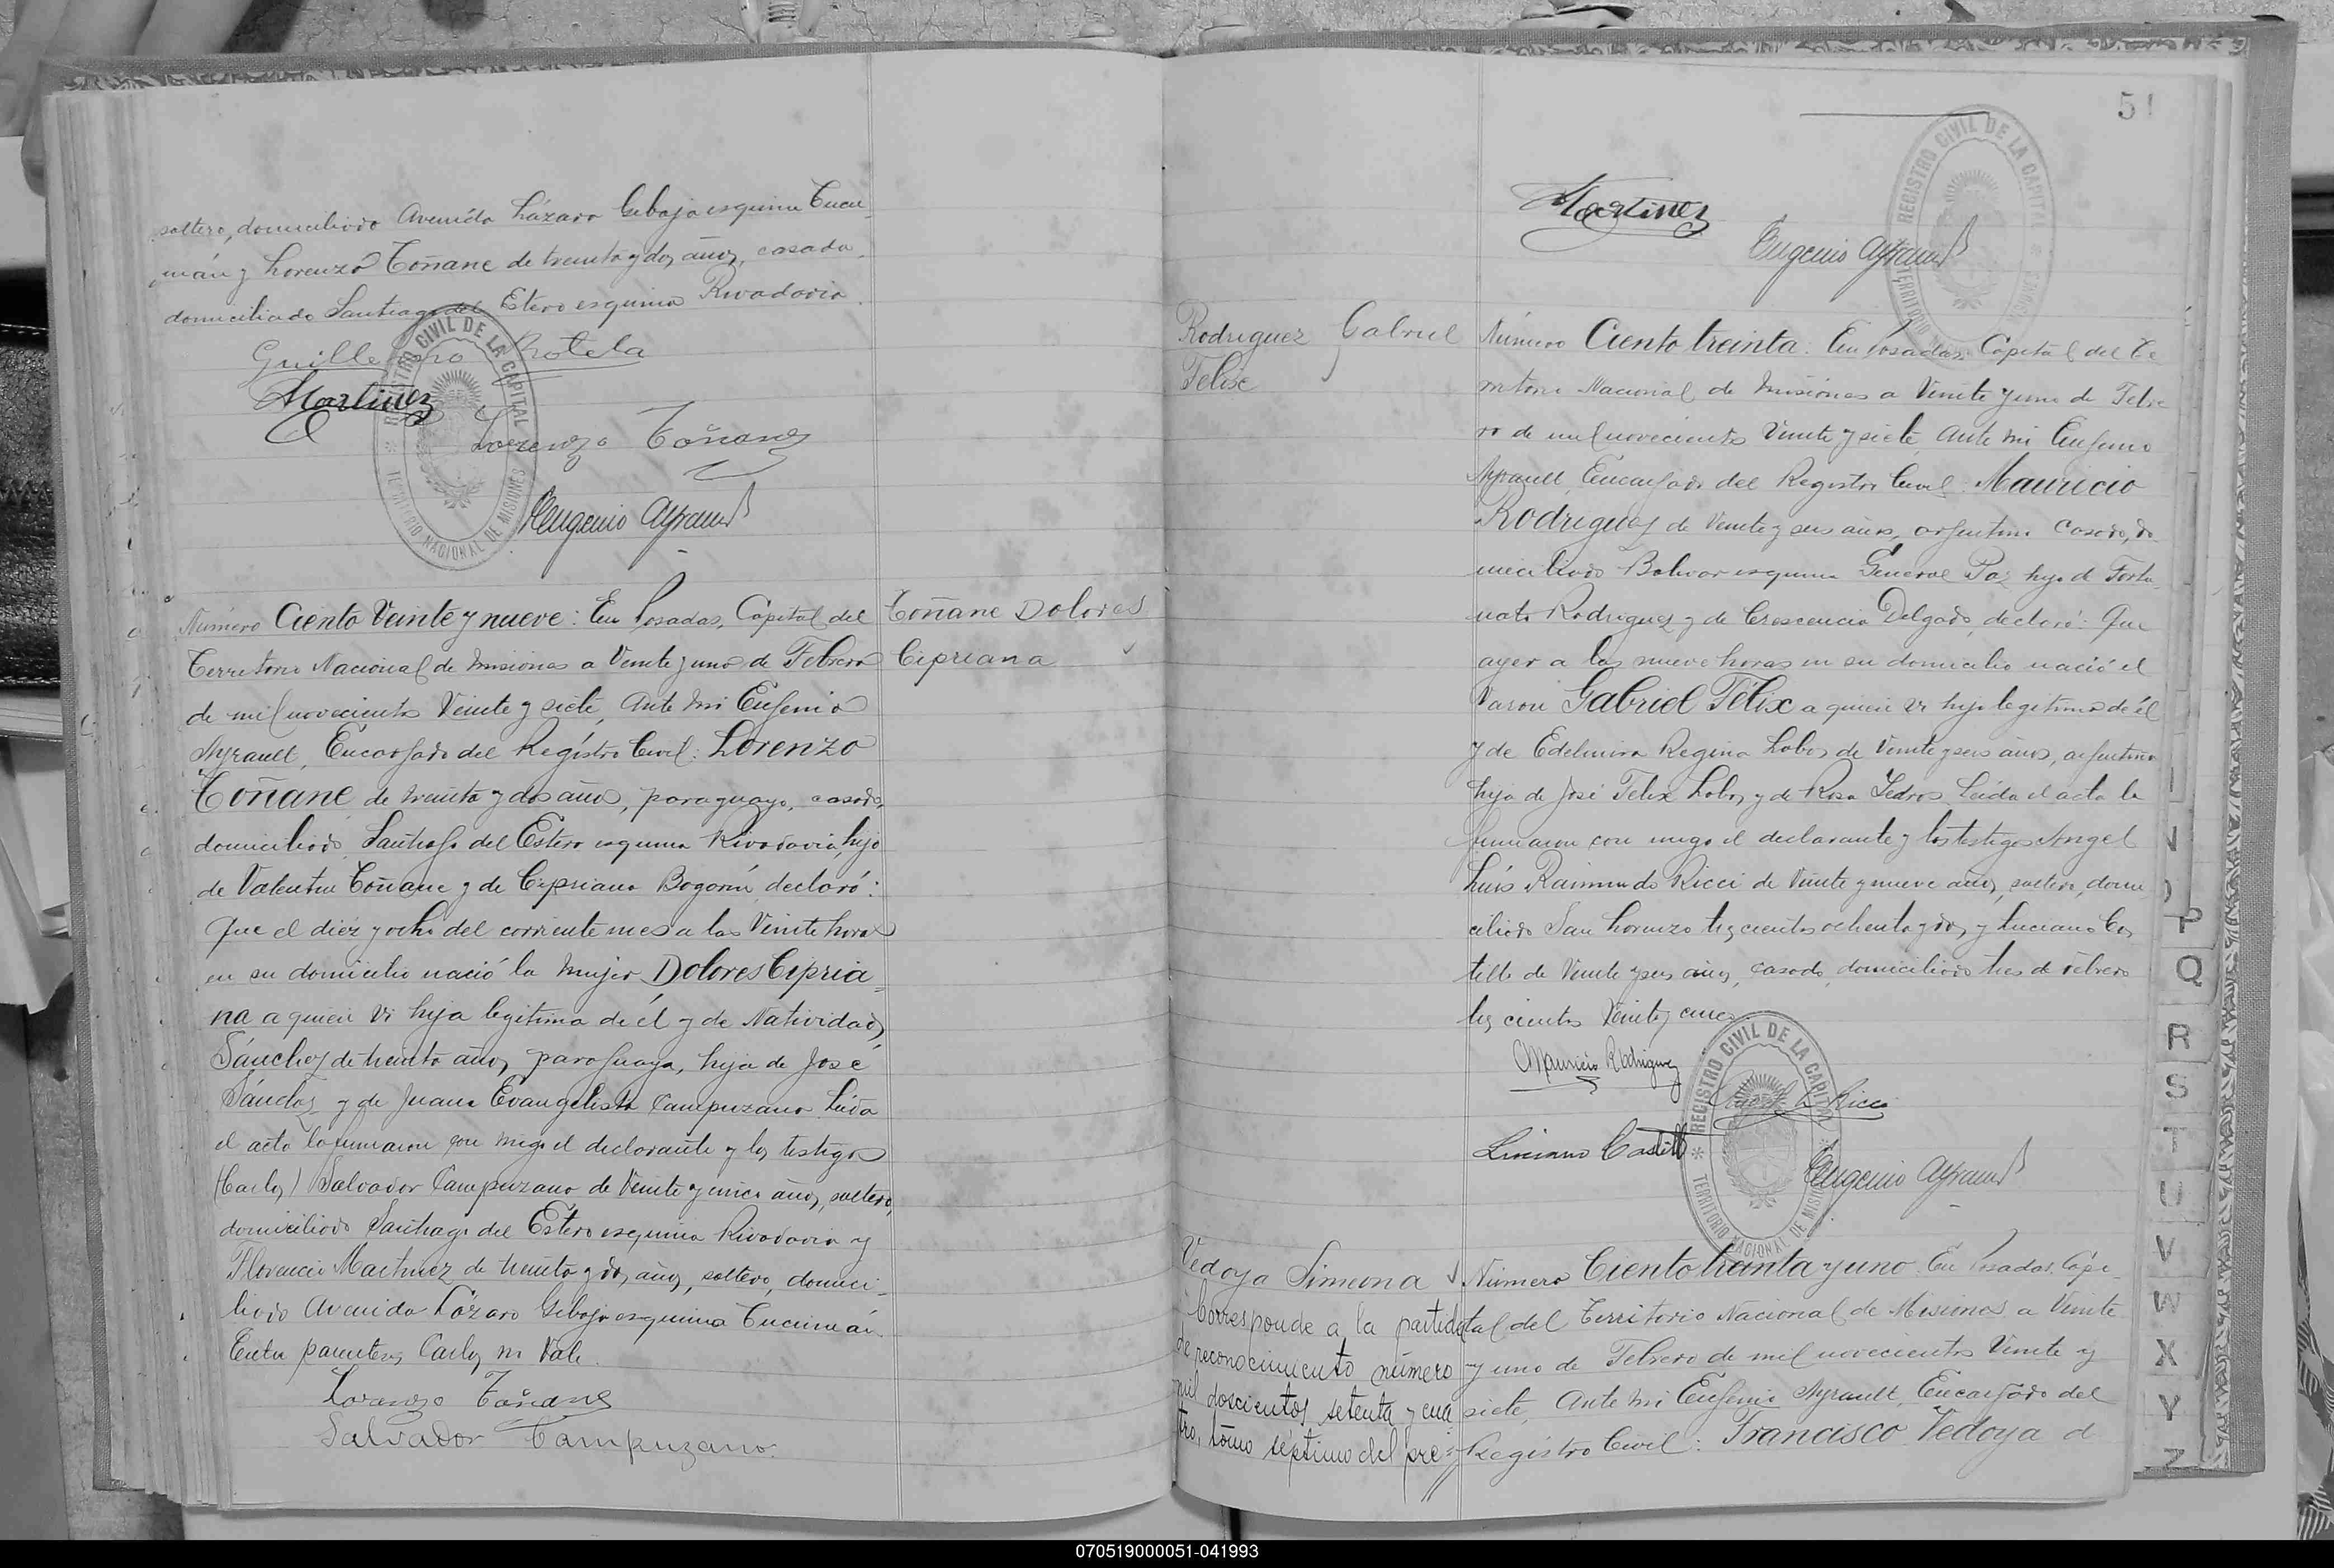 soltero, domiciliado Avenida Lázaro Gibaja esquina Tucu_
mán y Lorenzo Toñane de treinta y dos años, casado,
domiciliado Santiago del Estero esquina Rivadavia.
Guillermo Rotela
Martinez
Lorenzo Toñanez
Eugenio Ayrault
REGISTRO CIVIL DE LA CAPITAL
TERRITORIO NACIONAL DE MISIONES
Número Ciento Veinte y nueve: En Posadas, Capital del
Territorio Nacional de Misiones a Veinte y uno de Febrero
de mil novecientos Veinte y siete, Ante mi Eugenio
Ayrault, Encargado del Registro Civil: Lorenzo
Toñane de treinta y dos años, paraguayo, casado,
domiciliado Santiago del Estero esquina Rivadavia, hijo
de Valentin Toñane y de Cipriana Bogarín, declaró:
Que el diez y ocho del corriente mes a las Veinte horas
en su domicilio nació la mujer Dolores Cipria_
na a quien vi hija legitima de él y de Natividad
Sánchez de treinta años, paraguaya, hija de José
Sánchez y de Juana Evangelista Campuzano. Leida
el acta la firmaron con migo el declarante y los testigos
(Carlos) Salvador Campuzano de Veinte y cinco años, soltero,
domiciliado Santiago del Estero esquina Rivadavia y
Florencio Martinez de treinta y dos años, soltero, domici_
liado Avenida Lázaro Gibaja esquina Tucumán.
Entre parentesis Carlos no Vale.
Lorenzo Toñane
Salvador Campuzano.
Toñane Dolores
Cipriana
51
Martinez
Eugenio Ayrault
REGISTRO CIVIL DE LA CAPITAL
TERRITORIO
Rodriguez Gabriel
Felix
Número Ciento treinta: En Posadas, Capital del Te
rritorio Nacional de Misiones a Veinte y uno de Febre
ro de mil novecientos Veinte y siete, Ante mi Eugenio
Ayrault, Encargado del Registro Civil: Mauricio
Rodriguez de Veinte y seis años, argentino, casado, do_
miciliado Bolivar esquina General Paz hijo de Fortu_
nato Rodriguez y de Crescencia Delgado, declaró: Que
ayer a las nueve horas en su domicilio nació el
Varon Gabriel Félix a quien vi hijo legitimo de él
y de Edelmira Regina Lobos de Veinte y seis años, argentina
hija de José Felix Lobos y de Rosa Ledros. Leida el acta la
firmaron con migo el declarante y los testigos Angel
Luis Raimundo Ricci de Veinte y nueve años, soltero, domi
ciliado San Lorenzo trescientos ochenta y dos y Luciano Cas
tello de Veinte y seis años, casado, domiciliado tres de Febrero
trescientos Veinte y cinco.
Mauricio Rodriguez
Ricci
Luciano Castell
Eugenio Ayrault
REGISTRO CIVIL DE LA CAPITAL
TERRITORIO NACIONAL DE MISIONES
Vedoya Simeona
Corresponde a la partida
de reconocimiento número
mil doscientos setenta y cua
tro, tomo séptimo del pre=
Número Ciento treinta y uno. En Posadas, Capi_
tal del Territorio Nacional de Misiones a Veinte
y uno de Febrero de mil novecientos Veinte y
siete, Ante mi Eugenio Ayrault, Encargado del
Registro Civil: Francisco Vedoya d
P
Q
R
S
T
U
V
W
X
Y
Z
070519000051-041993